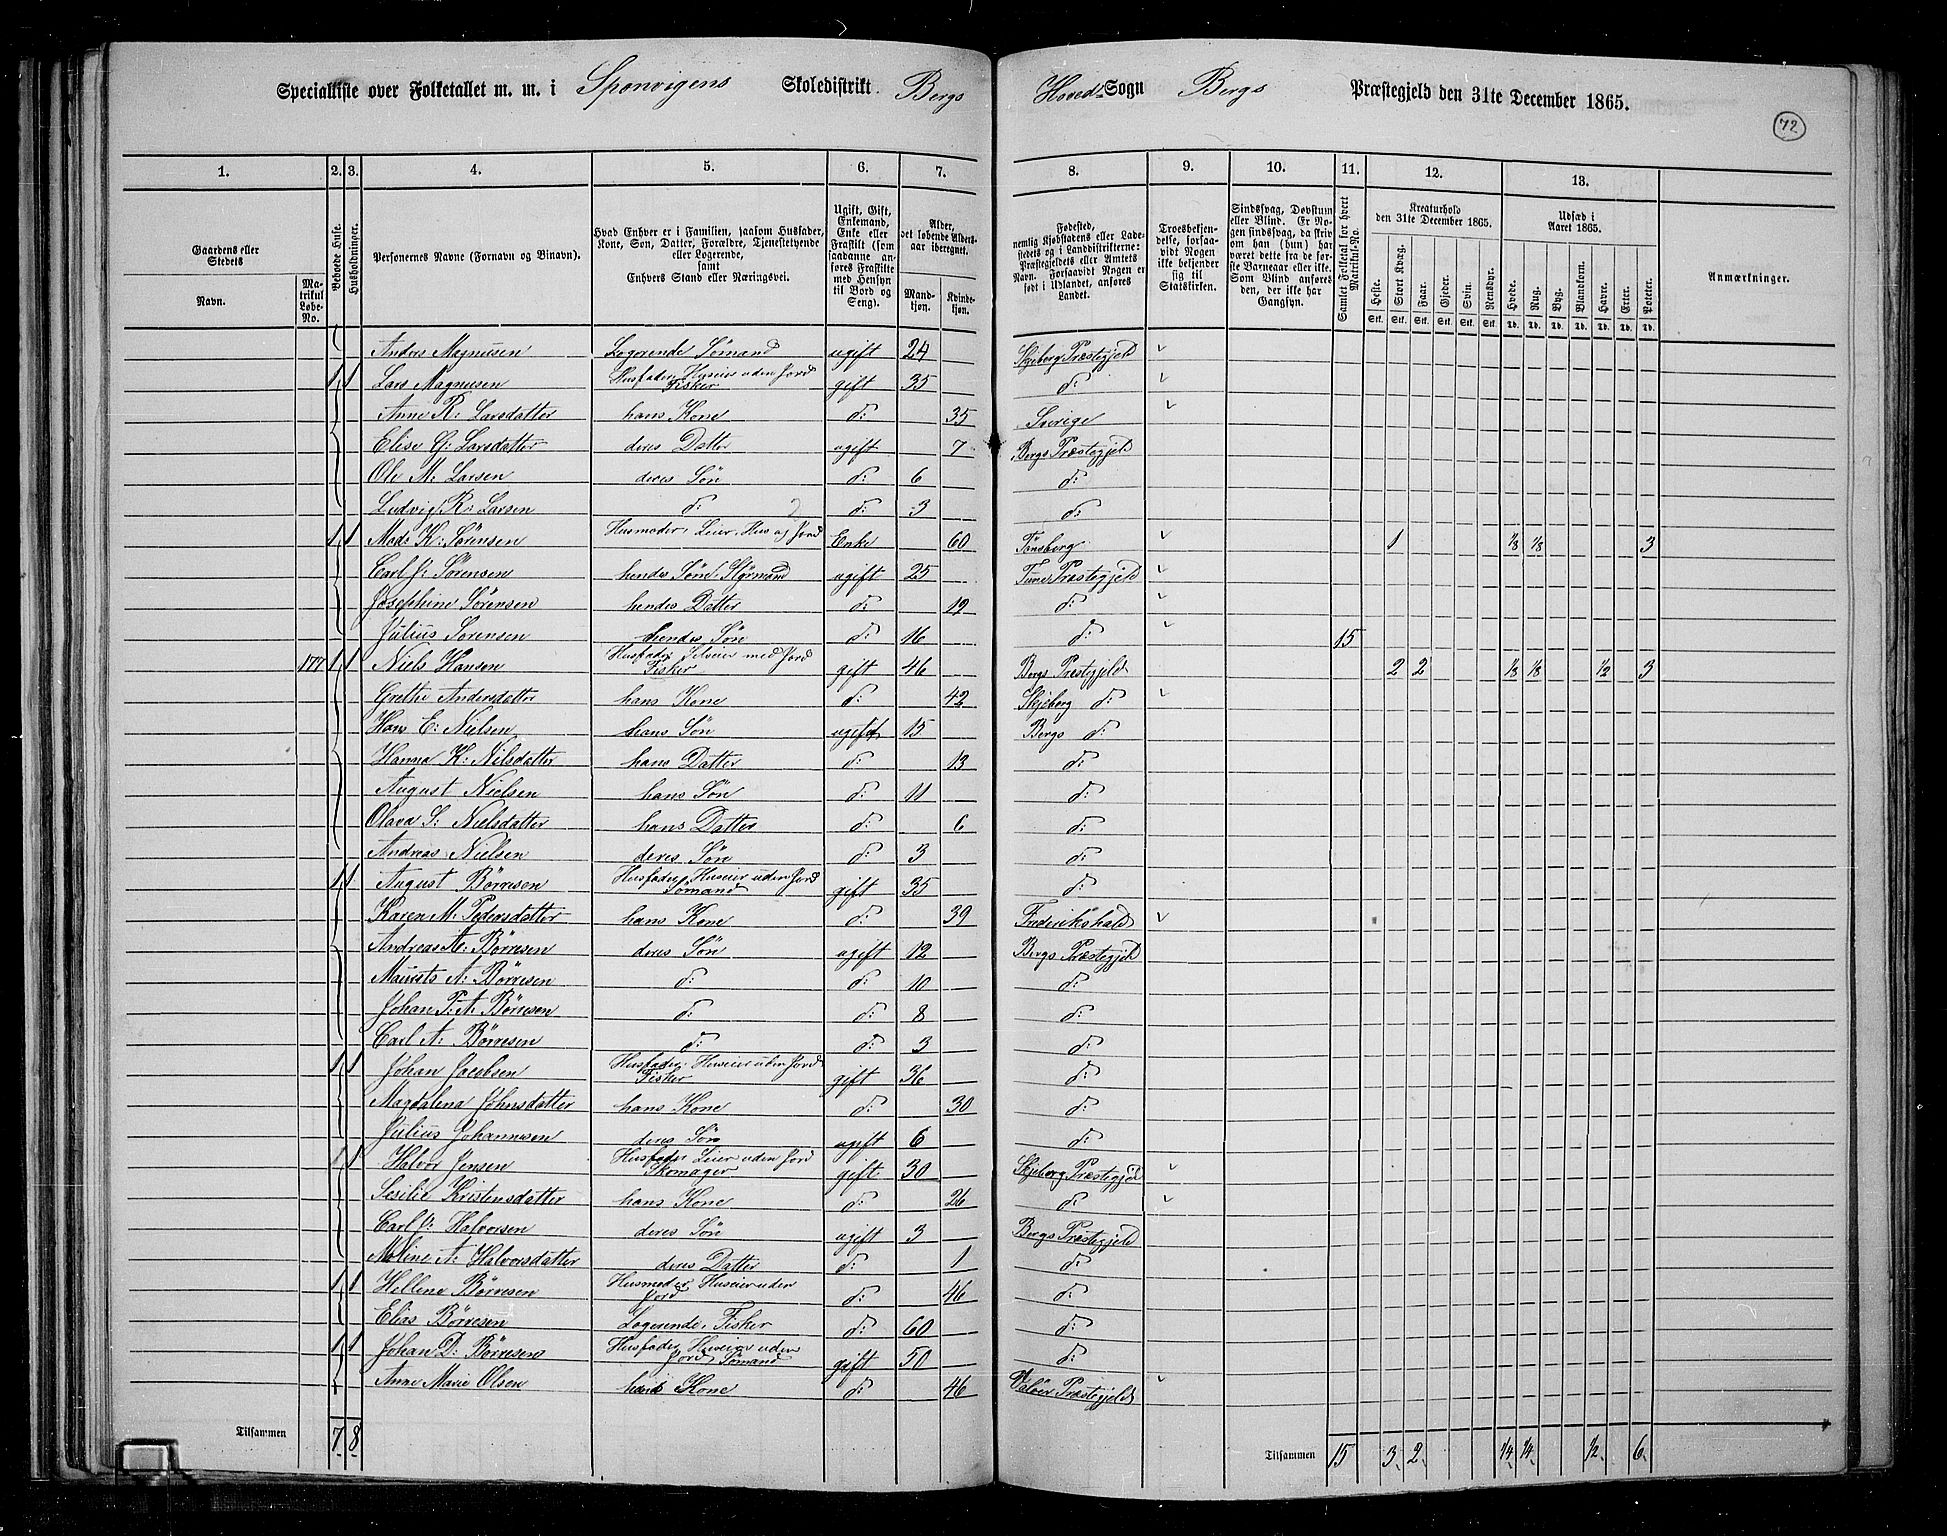 Specialliste over Folketallet m. m. i Sponvigens Skoledistrikt Bergs Hoved-Sogn Bergs Præstegjeld den 31te December 1865.
72
1. 2. 3. 4. 5. 6. 7. 8. 9. 10. 11. 12. 13.
Gaardens eller Stedets Navn.
Matrikul Løbe-No.
Beboede Huse.
Husholdninger.
Personernes Navne (Fornavn og Binavn).
Hvad Enhver er i Familien, saasom Husfader, Kone, Søn, Datter, Forældre, Tjenestetyende eller Logerende, samt Enhvers Stand eller Næringsvei.
Ugift, Gift, Enkemand, Enke eller Fraskilt (saadanne anføres Fraskilte med Hensyn til Bord og Seng).
Alder, det løbende Alders-aar iberegnet.
Mandkjøn. Kvindekjøn.
Fødested, nemlig Kjøbstadens eller Ladestedets og i Landdistrikterne: Præstegjeldets eller Amtets Navn. Forsaavidt Nogen er født i Udlandet, anføres Landet.
Troesbekjendelse, forsaavidt Nogen ikke bekjender sig til Statskirken.
Sindssvag, Døvstum eller Blind. Er Nogen sindssvag, da skrives om han (hun) har været det fra de første Barneaar eller ikke. Som Blind anføres den, der ikke har Gangsyn.
Samlet Folketal for hvert Matrikul-No.
Kreaturhold den 31te December 1865.
Heste. Stort Kvæg. Faar. Gjeder. Svin. Rensdyr.
Udsæd i Aaret 1865.
Hvede. Rug. Byg. Blandkorn. Havre. Erter. Poteter.
Anmærkninger.
Anders Magnusen Logerende Sømand ugift 24 Skjeberg Præstegjeld
1 1 Lars Magnusen Husfader, Huseier uden Jord Fisker gift 35 d:
Anne R: Larsdatter hans Kone d: 35 Sverige
Elise G: Larsdatter deres Datter ugift 7 Bergs Præstegjeld
Ole M. Larsen deres Søn d: 6 d:
Ludvig R: Larsen d: d: 3 d:
1 1 Mads K: Sørensen Husmoder, Leier, Hus og Jord Enke 60 Tønsberg 1 1/8 1/8 3
Carl J: Sørensen hendes Søn: Styrmand ugift 25 Tune Præstegjeld
Josephine Sørensen hendes Datter d: 19 d:
Julius Sørensen hendes Søn d: 16 d: 15
177 1 1 Niels Hansen Husfader Selveier med Jord Fisker gift 46 Bergs Præstegjeld 2 2 1/8 1/8 1/2 3
Grethe Andersdatter hans Kone d: 42 Skjeberg d:
Hans E: Nielsen hans Søn ugift 15 Bergs d:
Hanna K: Nilsdatter hans Datter d: 13 d:
August Nielsen hans Søn d: 11 d:
Olava S: Nielsdatter hans Datter d: 6 d:
Andreas Nielsen deres Søn d: 3 d:
1 1 August Børresen Husfader, Huseier uden Jord Sømand gift 35 d:
Karen M. Pedersdatter hans Kone d: 39 Frederikshald
Andreas A: Børresen deres Søn ugift 12 Bergs Præstegjeld
Maurits A: Børresen d: d: 10 d:
Johan P: A Børresen d: d: 8 d:
Carl A: Børresen d: d: 3 d:
1 1 Johan Jacobsen Husfader, Huseier uden Jord Fisker gift 36 d:
Magdalena Johnsdatter hans Kone d: 30 d:
Julius Johannesen deres Søn ugift 6 d:
1 1 Halvor Jensen Husfader Leier uden Jord Skomager gift 30 Skjeberg Præstegjeld
Sesilie Kristensdatter hans Kone d: 26 d:
Carl J: Halvorsen deres Søn ugift 3 Bergs Præstegjeld
Moline A: Halvorsdatter deres Datter d: 1 d:
1 1 Hellene Børresen Husmoder Huseier uden Jord d: 46 d:
Elias Børresen Logerende, Fisker d: 60 d:
1 1 Johan D: Børresen Husfader Huseier uden Jord Sømand gift 50 d:
Anne Marie Olsen hans Kone d: 46 Valöer Præstegjeld
Tilsammen 7 8 Tilsammen 15 3 2 1/4 1/4 1/2 6